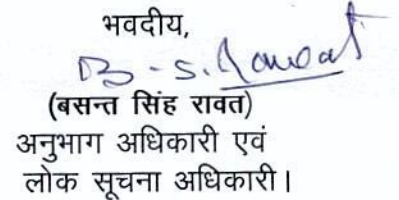 भवदीय,
B-S. Rawat
(बसन्त सिंह रावत)
अनुभाग अधिकारी एवं
लोक सूचना अधिकारी।